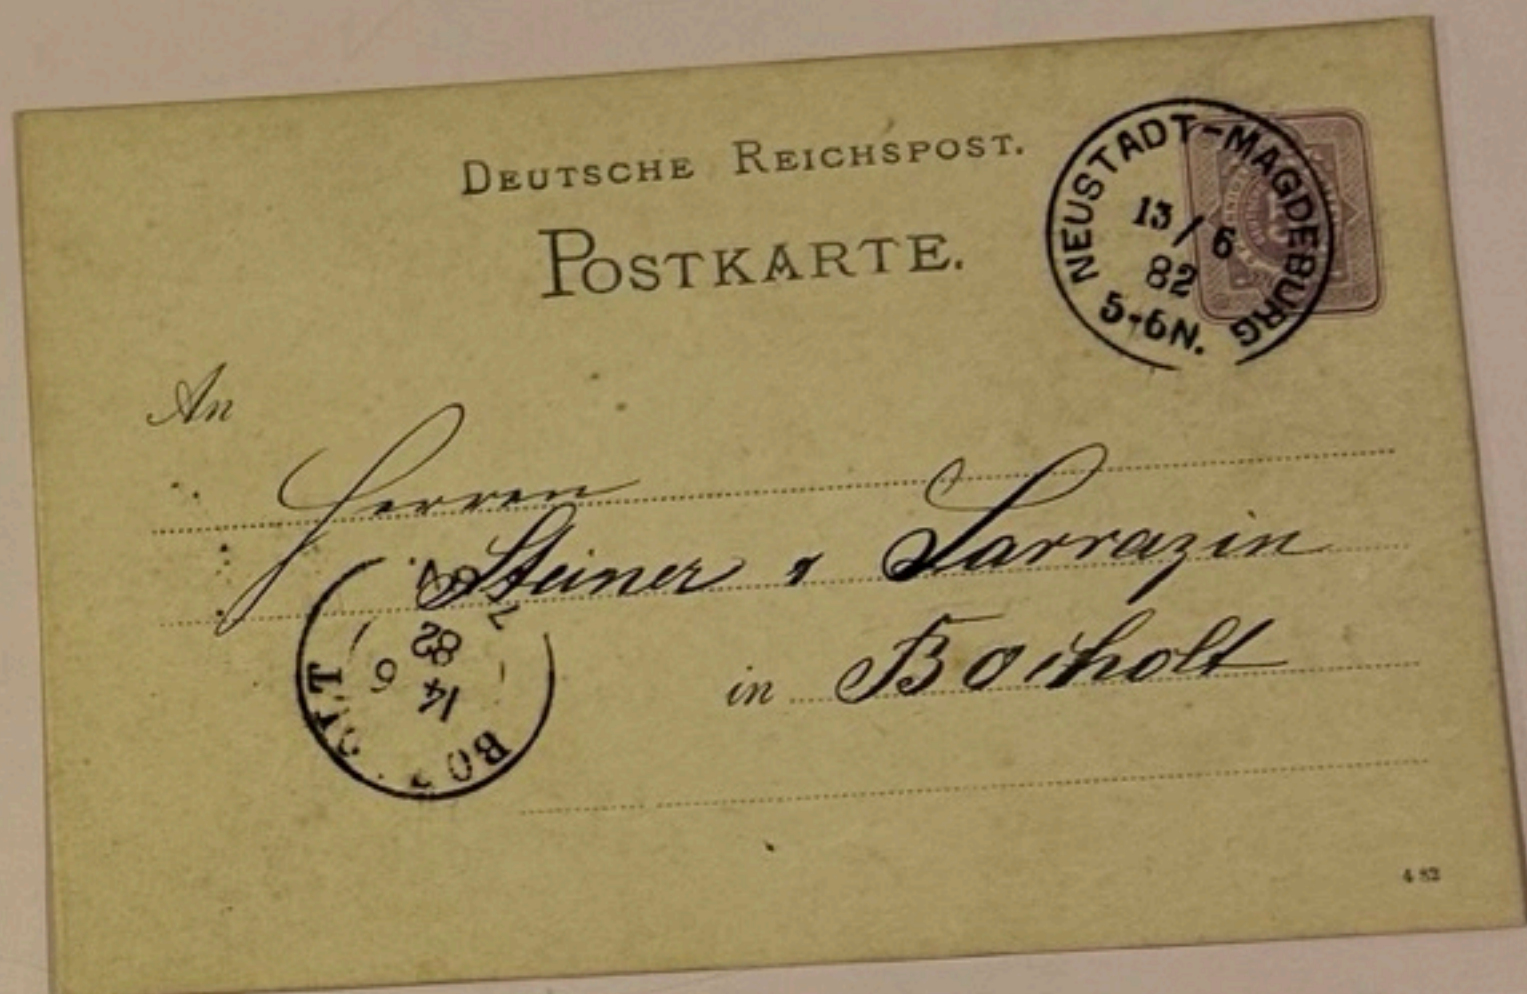 DEUTSCHE REICHSPOST.
POSTKARTE.
NEUSTADT-MAGDEBURG
13/6
82
5-6N.
An
Herren
Steiner & Sarrazin
in Bocholt
14
6
82
4 82